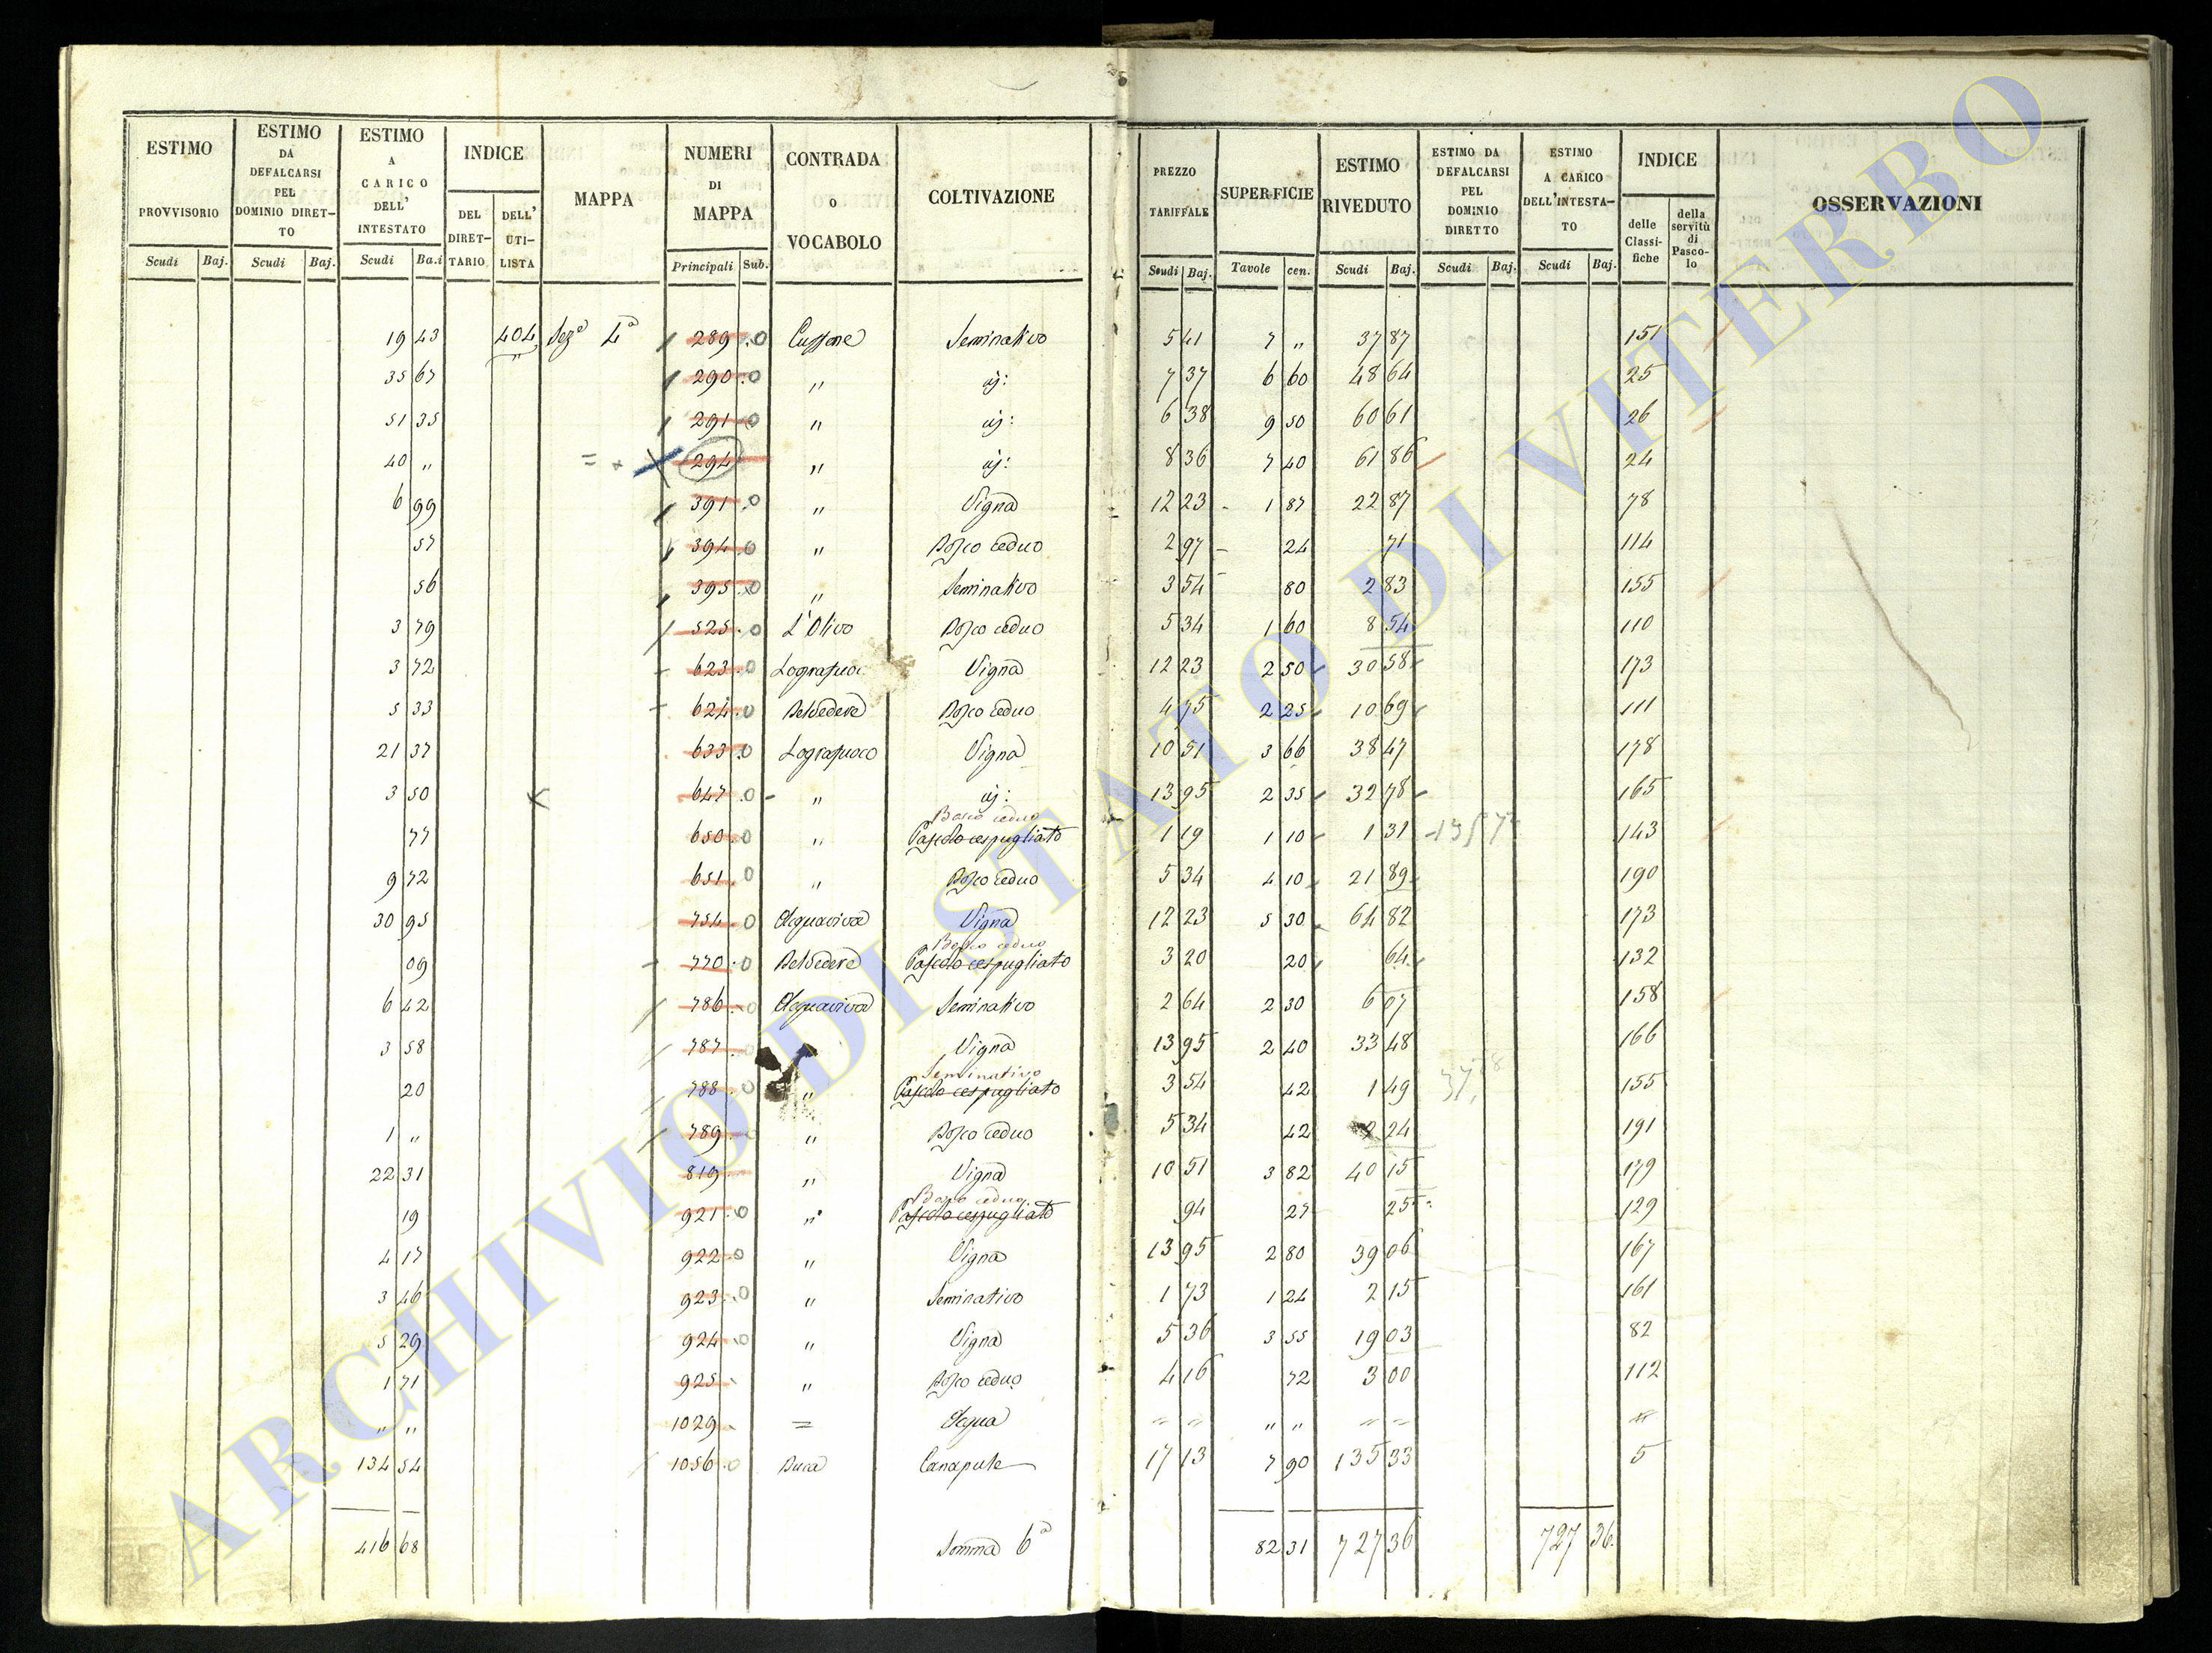 ESTIMO PROVVISORIO | ESTIMO DA DEFALCARSI PEL DOMINIO DIRET–TO | ESTIMO A CARICO DELL' INTESTATO | INDICE | MAPPA | NUMERI DI MAPPA | CONTRADA O VOCABOLO | COLTIVAZIONE | PREZZO TARIFFALE | SUPERFICIE | ESTIMO RIVEDUTO | ESTIMO DA DEFALCARSI PEL DOMINIO DIRETTO | ESTIMO A CARICO DELL'INTESTA–TO | INDICE | OSSERVAZIONI
DEL DIRET–TARIO | DELL' UTI–LISTA | delle Classi–fiche | della servitù di Pasco–lo
Scudi | Baj. | Scudi | Baj. | Scudi | Ba.i | Principali | Sub. | Scudi | Baj. | Tavole | cen. | Scudi | Baj. | Scudi | Baj. | Scudi | Baj.
19 43 404 Sez.a 4a 289 0 Seminativo 5 41 7 " 37 87 151
35 67 290 0 " id: 7 37 6 60 48 64 25
51 35 291 0 " id: 6 38 9 50 60 61 26
40 " = + X 294 " id: 8 36 7 40 61 86 24
6 99 391 0 " Vigna 12 23 1 87 22 87 78
57 394 0 " Bosco ceduo 2 97 24 71 114
56 395 0 " Seminativo 3 54 80 2 83 155
3 79 525 0 L'Olivo Bosco ceduo 5 34 1 60 8 54 110
3 72 623 0 Vigna 12 23 2 50 30 58 173
5 33 624 0 Belvedere Bosco ceduo 4 75 2 25 10 69 111
21 37 633 0 Lograsuoco Vigna 10 51 3 66 38 47 178
3 50 647 0 " id: 13 95 2 35 32 78 165
Bosco ceduo
77 650 0 " Pascolo cespugliato 1 19 1 10 1 31 143
9 72 651 0 " Bosco ceduo 5 34 4 10 21 89 190
30 95 754 0 Acquaviva Vigna 12 23 5 30 64 82 173
Bosco ceduo
09 770 0 Belvedere Pascolo cespugliato 3 20 20 64 132
6 42 786 0 Acquaviva Seminativo 2 64 2 30 6 07 158
3 58 787 Vigna 13 95 2 40 33 48 166
Seminativo
20 788 0 " Pascolo cespugliato 3 54 42 1 49 155
1 " 789 0 " Bosco ceduo 5 34 42 2 24 191
22 31 819 " Vigna 10 51 3 82 40 15 179
Bosco ceduo
19 921 0 " Pascolo cespugliato 94 27 25 129
4 17 922 0 " Vigna 13 95 2 80 39 06 167
3 46 923 0 " Seminativo 1 73 1 24 2 15 161
5 29 924 0 " Vigna 5 36 3 55 19 03 82
1 71 925 " Bosco ceduo 4 16 72 3 00 112
" " 1029 = Acqua " " " " " " "
134 54 1056 0 Buca Canapule 17 13 7 90 135 33 5
416 68 Somma 6a 82 31 727 36 727 36
ARCHIVIO DI STATO DI VITERBO